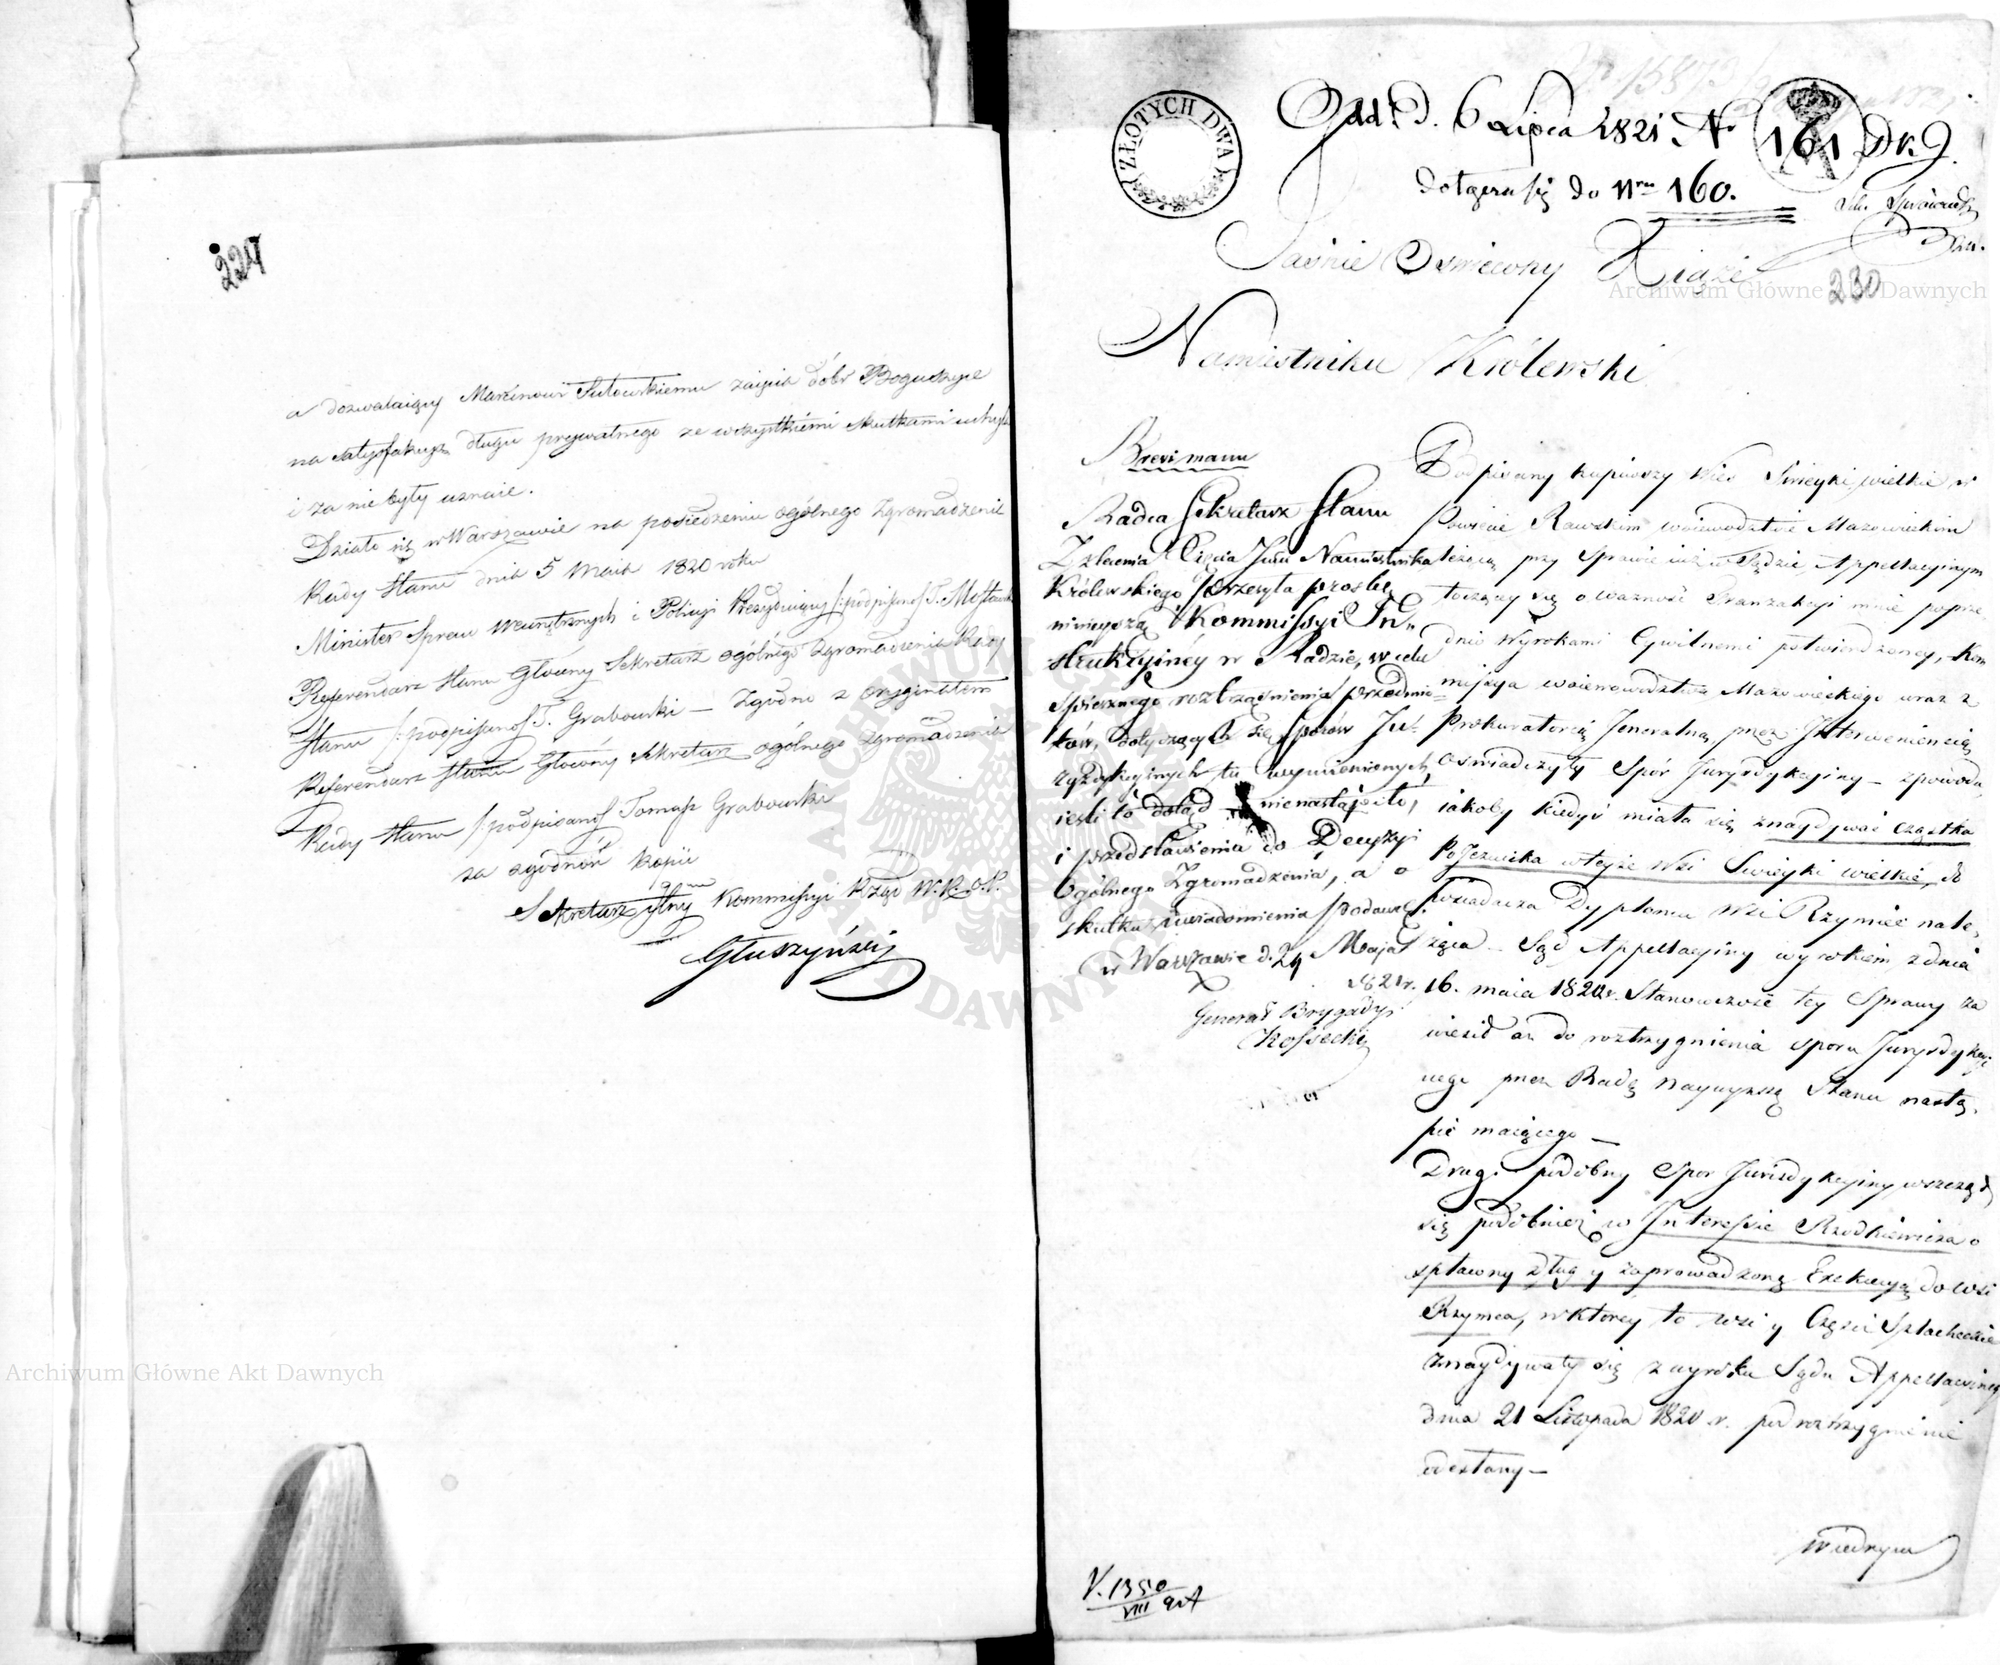 227
a dozwalaiący Marcinowi Sutowskiemu zaięcia dóbr Boguszyce
na satysfakcyą długu prywatnego ze wszystkiemi skutkami uchyla
i za niebyły uznaie.
Działo się w Warszawie na posiedzeniu ogólnego Zgromadzenia
Rady Stanu dnia 5 Maia 1820 roku
Minister Spraw Wewnętrznych i Policyi Prezyduiący /:podpisano/ T. Mostowski
Referendarz Stanu Główny Sekretarz ogólnego Zgromadzenia Rady
Stanu /:podpisano/ T. Grabowski — Zgodno z oryginałem
Referendarz Stanu Główny Sekretarz ogólnego Zgromadzenia
Rady Stanu /:podpisano/ Tomasz Grabowski
za zgodność kopii
Sekretarz Jlny Kommissyi Rządo W. R. O. P.
Głuszyński
ZŁOTYCH DWA
d. 6 Lipca 1821 N° 161 Dr. J.
dołącza się do Nru 160.
230
Jaśnie Oświecony Xiążę
Namiestniku Królewski
Brevi manu
Radca Sekretarz Stanu
Z zlecenia Xięcia Jmci Namiestnika
Królewskiego przesyła prosbę
ninieyszą Kommissyi In-
strukcyiney w Radzie, w celu
spiesznego roztrząśnienia przedmio-
tów, dotyczących się sporów Ju-
ryzdykcyinych tu wymienionych,
iesli to dotąd nienastąpiło,
i przedstawienia do Decyzyi
Ogólnego Zgromadzenia, a o
skutku zawiadomienia podawcę.
w Warszawie d. 24 Maja
1821 r.
Generał Brygady
Kossecki
Podpisany kupiwszy Wieś Swieyki wielkie w
Powiecie Rawskim woiewodztwie Mazowieckim
leżącą przy sprawie iuż w Sądzie Appellacyinym
toczącey się o ważność Tranzakcyi mnie poprze
dnio Wyrokami Cywilnemi potwierdzoney, Kom
missya woiewodztwa Mazowieckiego wraz z
Prokuratorią Jeneralną przez Interwenienią
oswiadczyły Spór Jurysdykcyiny — z powodu,
iakoby kiedyś miała się znaydywać cząstka
Pojezuicka w teyże Wsi Swieyki wielkie, do
posiadacza Dyplomu Wsi Rzymiec nale-
żąca — Sąd Appellacyiny wyrokiem z dnia
16. maia 1820 r. Stanowczość tey Sprawy za
wiesił aż do roztrzygnienia sporu Jurysdykcyi
nego przez Radę Naywyższą Stanu nastą-
pić maiącego —
Drugi podobny Spor Jurisdykcyiny wszczął
się podobnież w Interessie Rzodkiewicza o
spławny dług y zaprowadzoną Exekucyą do wsi
Rzymca, w ktorey to wsi y Części Szlacheckie
znaydywały się z wyroku Sądu Appellacyinego
dnia 21 Listopada 1820 r. pod roztrzygnienie
odesłany —
w iednym
V. 1350
VIII
Archiwum Główne Akt Dawnych
Archiwum Główne Akt Dawnych
ARCHIWUM GŁÓWNE AKT DAWNYCH